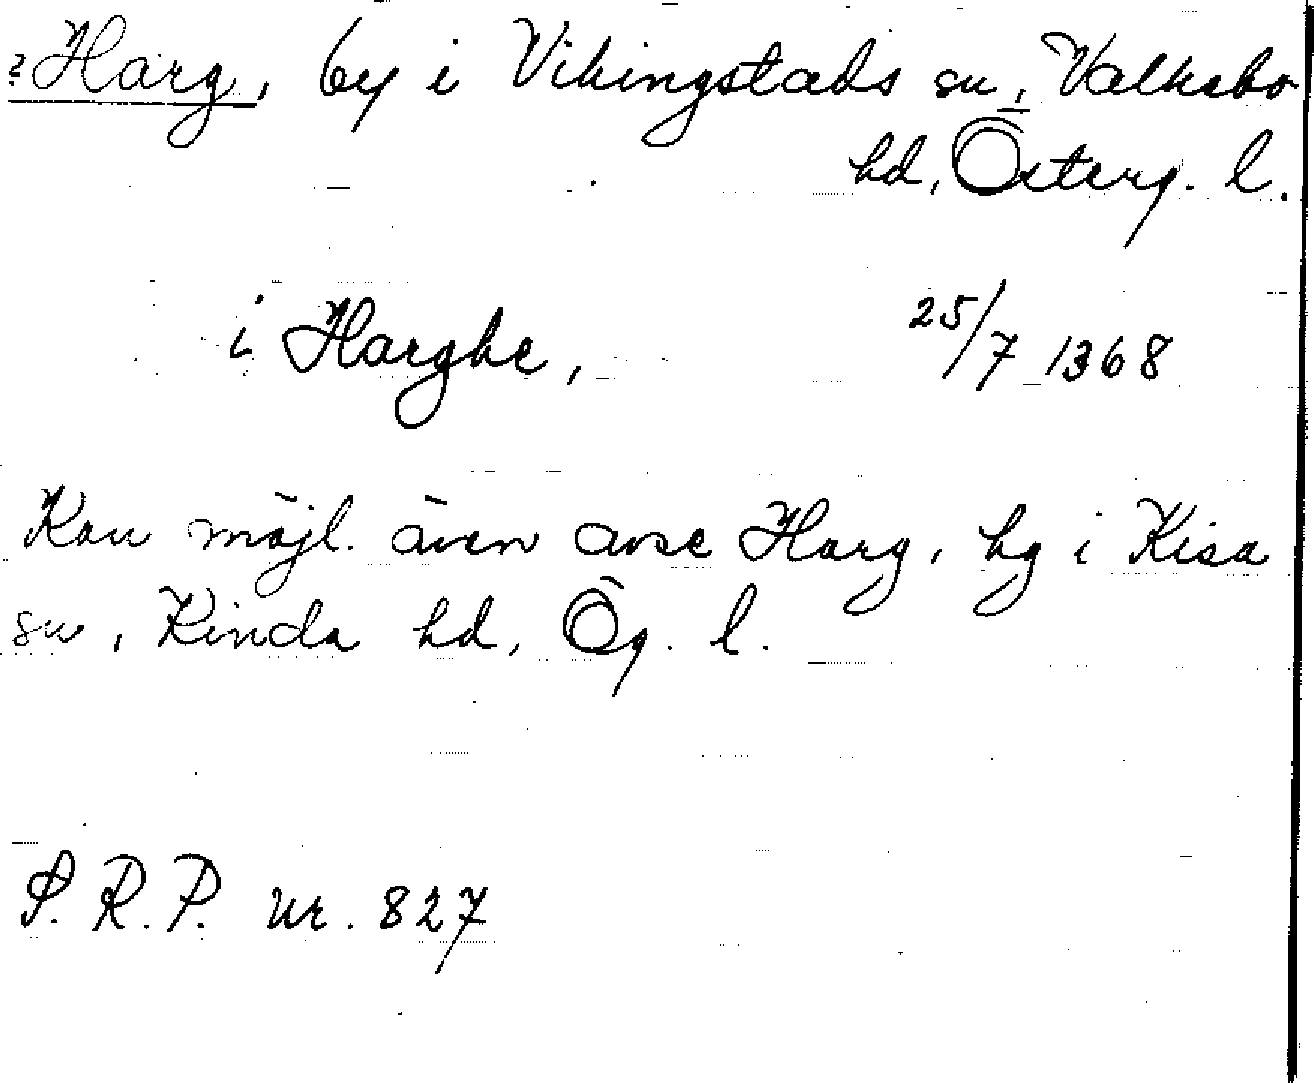 ?Harg, by i Vikingstads sn, Valkebo
hd, Österg. l.
i Harghe, 25/7 1368
Kan möjl. även avse Harg, hg i Kisa
sn, Kinda hd, Ög. l.
S.R.P. nr. 827